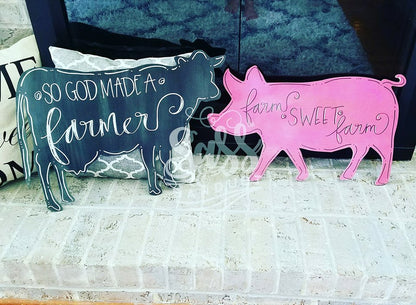 SO GOD MADE A
farmer
farm
SWEET
farm
Sass